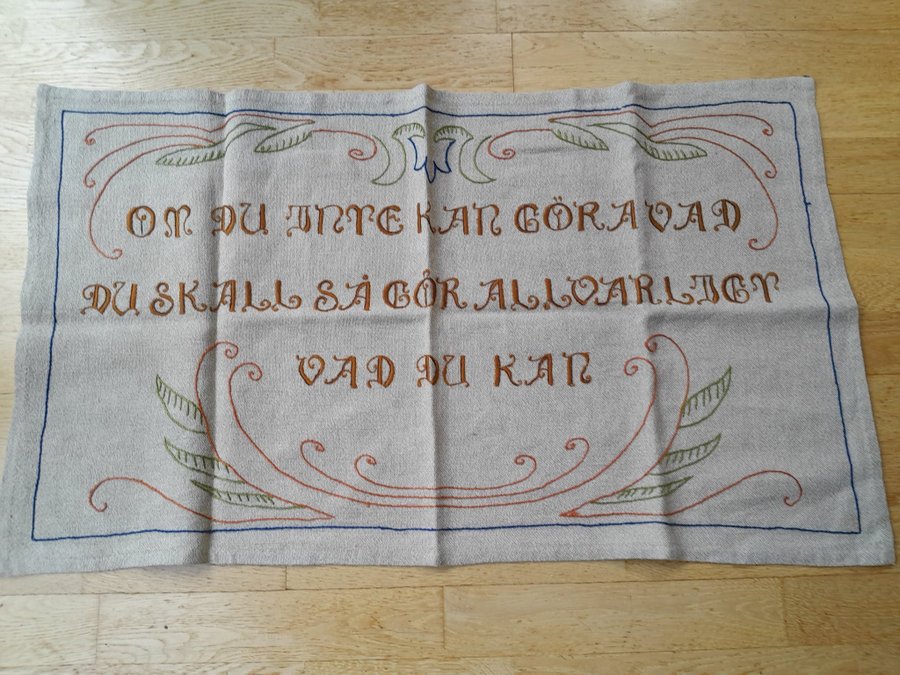 OM DU INTE KAN GÖRA VAD
DU SKALL SÅ GÖR ALLVARLIGT
VAD DU KAN